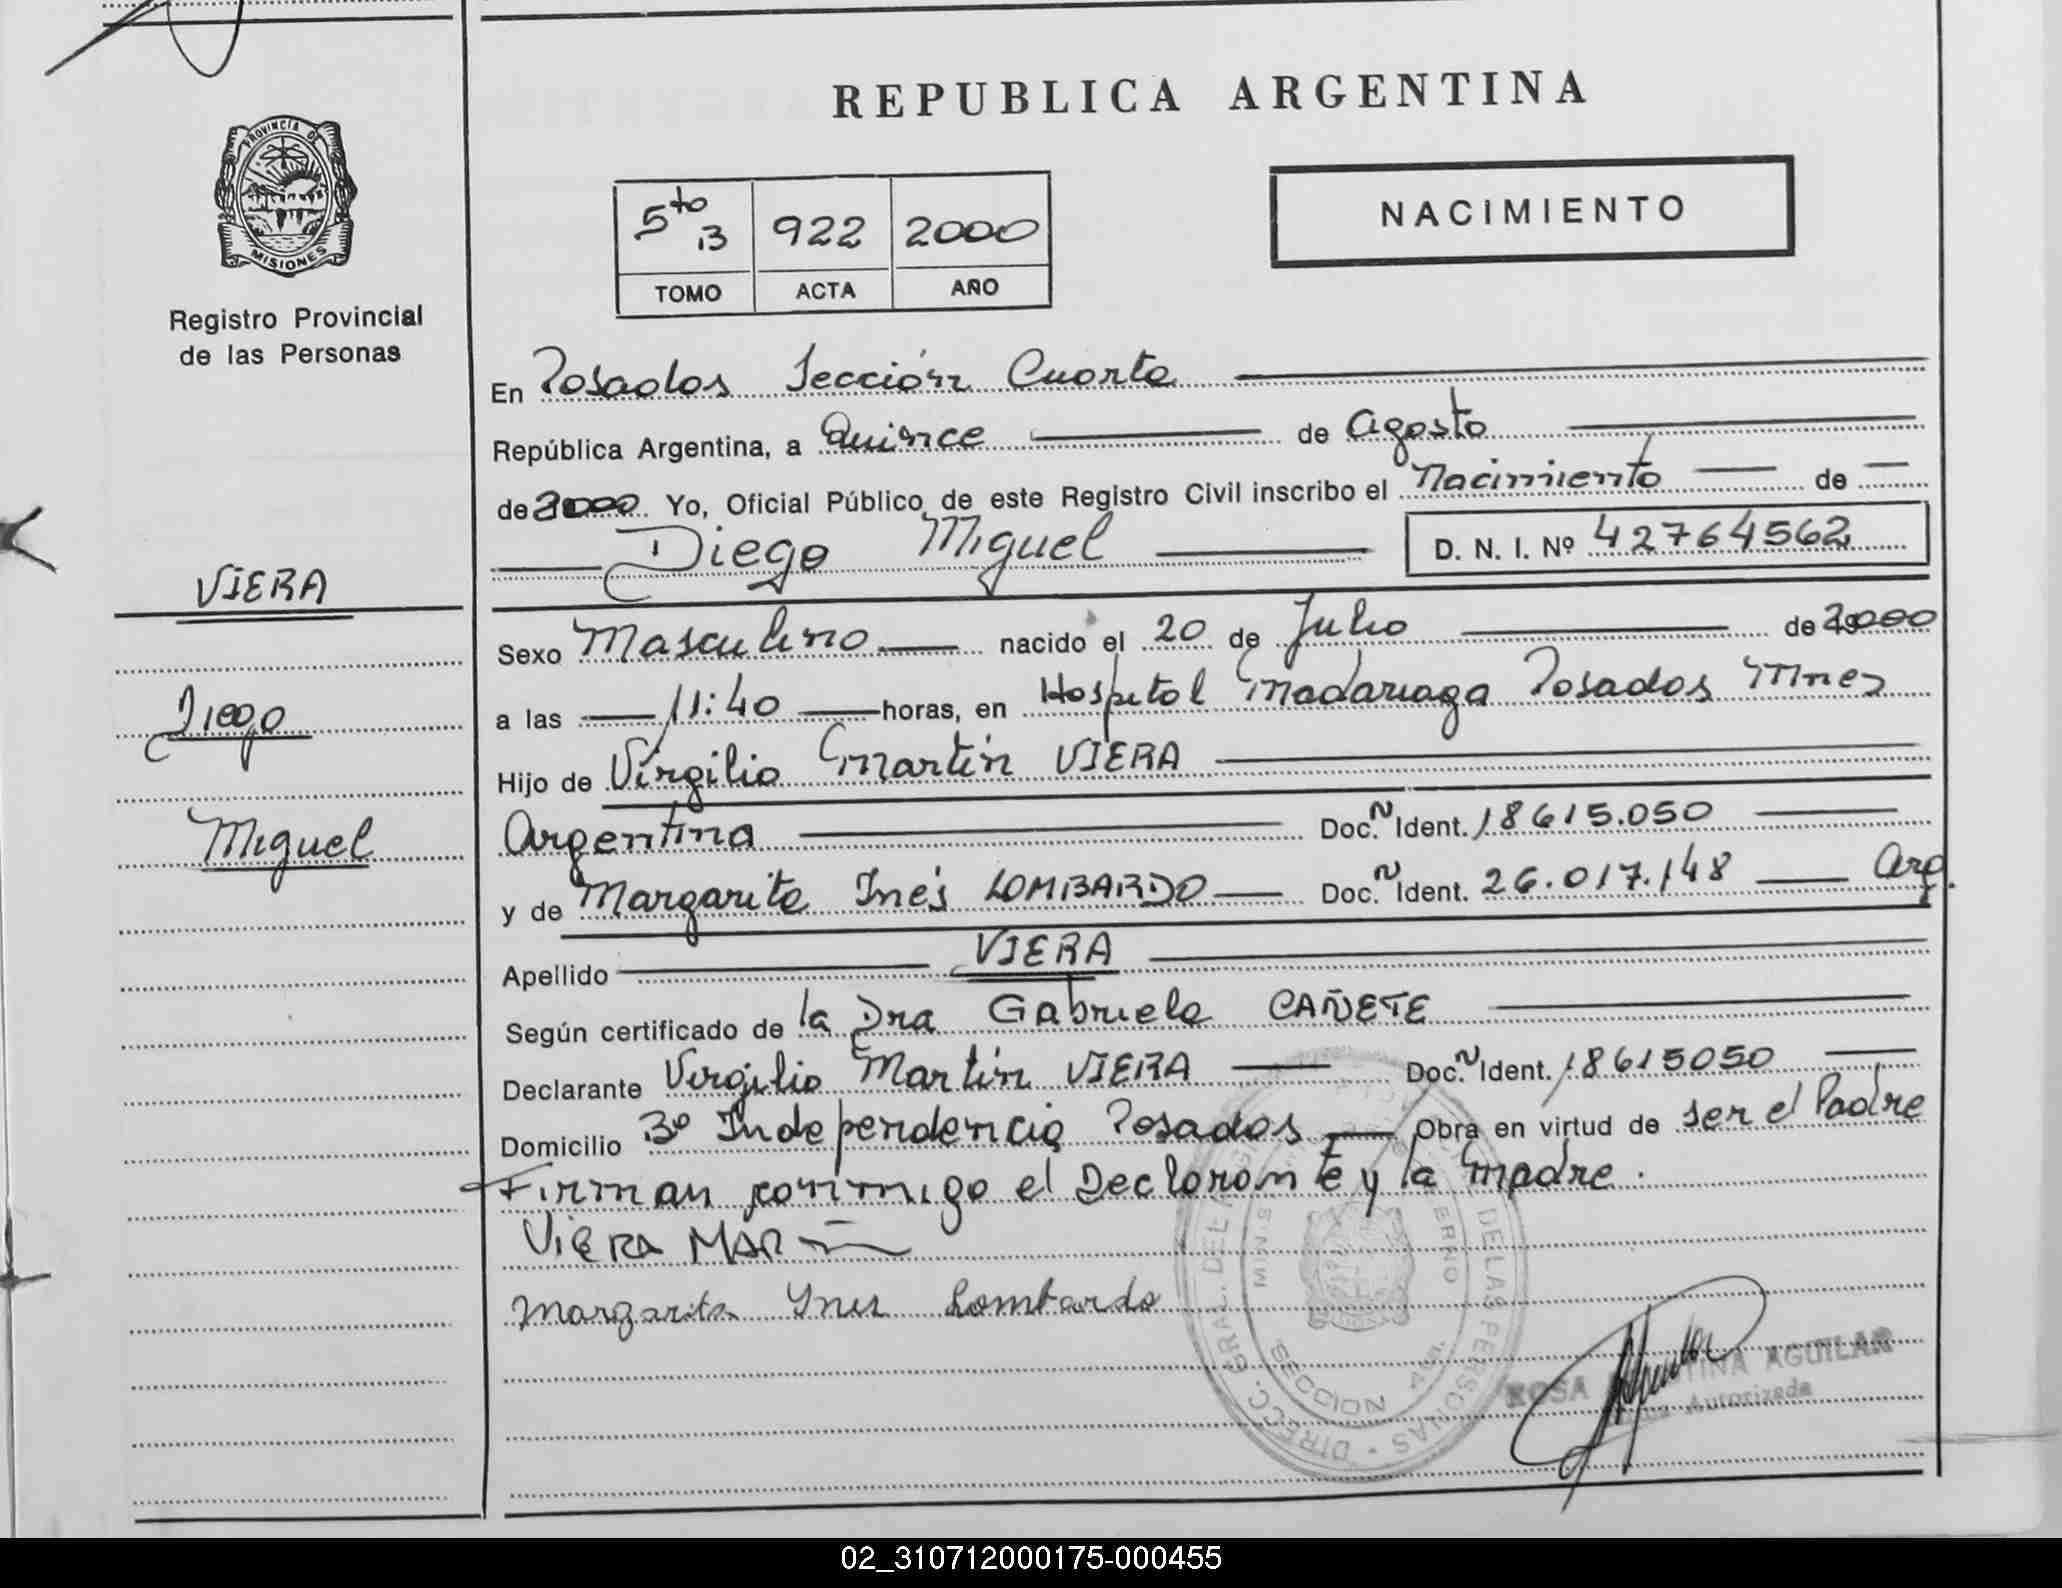 REPUBLICA ARGENTINA
PROVINCIA DE
MISIONES
Registro Provincial
de las Personas
5to B 922 2000
TOMO ACTA AÑO
NACIMIENTO
En Posadas Sección Cuarta
República Argentina, a Quince de Agosto
de 2000 Yo, Oficial Público de este Registro Civil inscribo el Nacimiento de
Diego Miguel D. N. I. Nº 42764562
VIERA
Diego
Miguel
Sexo Masculino nacido el 20 de Julio de 2000
a las 11:40 horas, en Hospital Madariaga Posadas Mnes
Hijo de Virgilio Martín VIERA
Argentina Doc. Ident. 18615.050
y de Margarita Inés LOMBARDO Doc. Ident. 26.017.148 Arg.
Apellido VIERA
Según certificado de la Dra Gabriela CAÑETE
Declarante Virgilio Martín VIERA Doc. Ident. 18615050
Domicilio Bº Independencia Posadas Obra en virtud de ser el Padre
Firman conmigo el Declarante y la madre.
VIERA MAR
Margarita Ines Lombardo
DIRECC. GRAL. DEL DE LAS PERSONAS
SECCION 4
ROSA AGUILAR
Autorizada
02_310712000175-000455